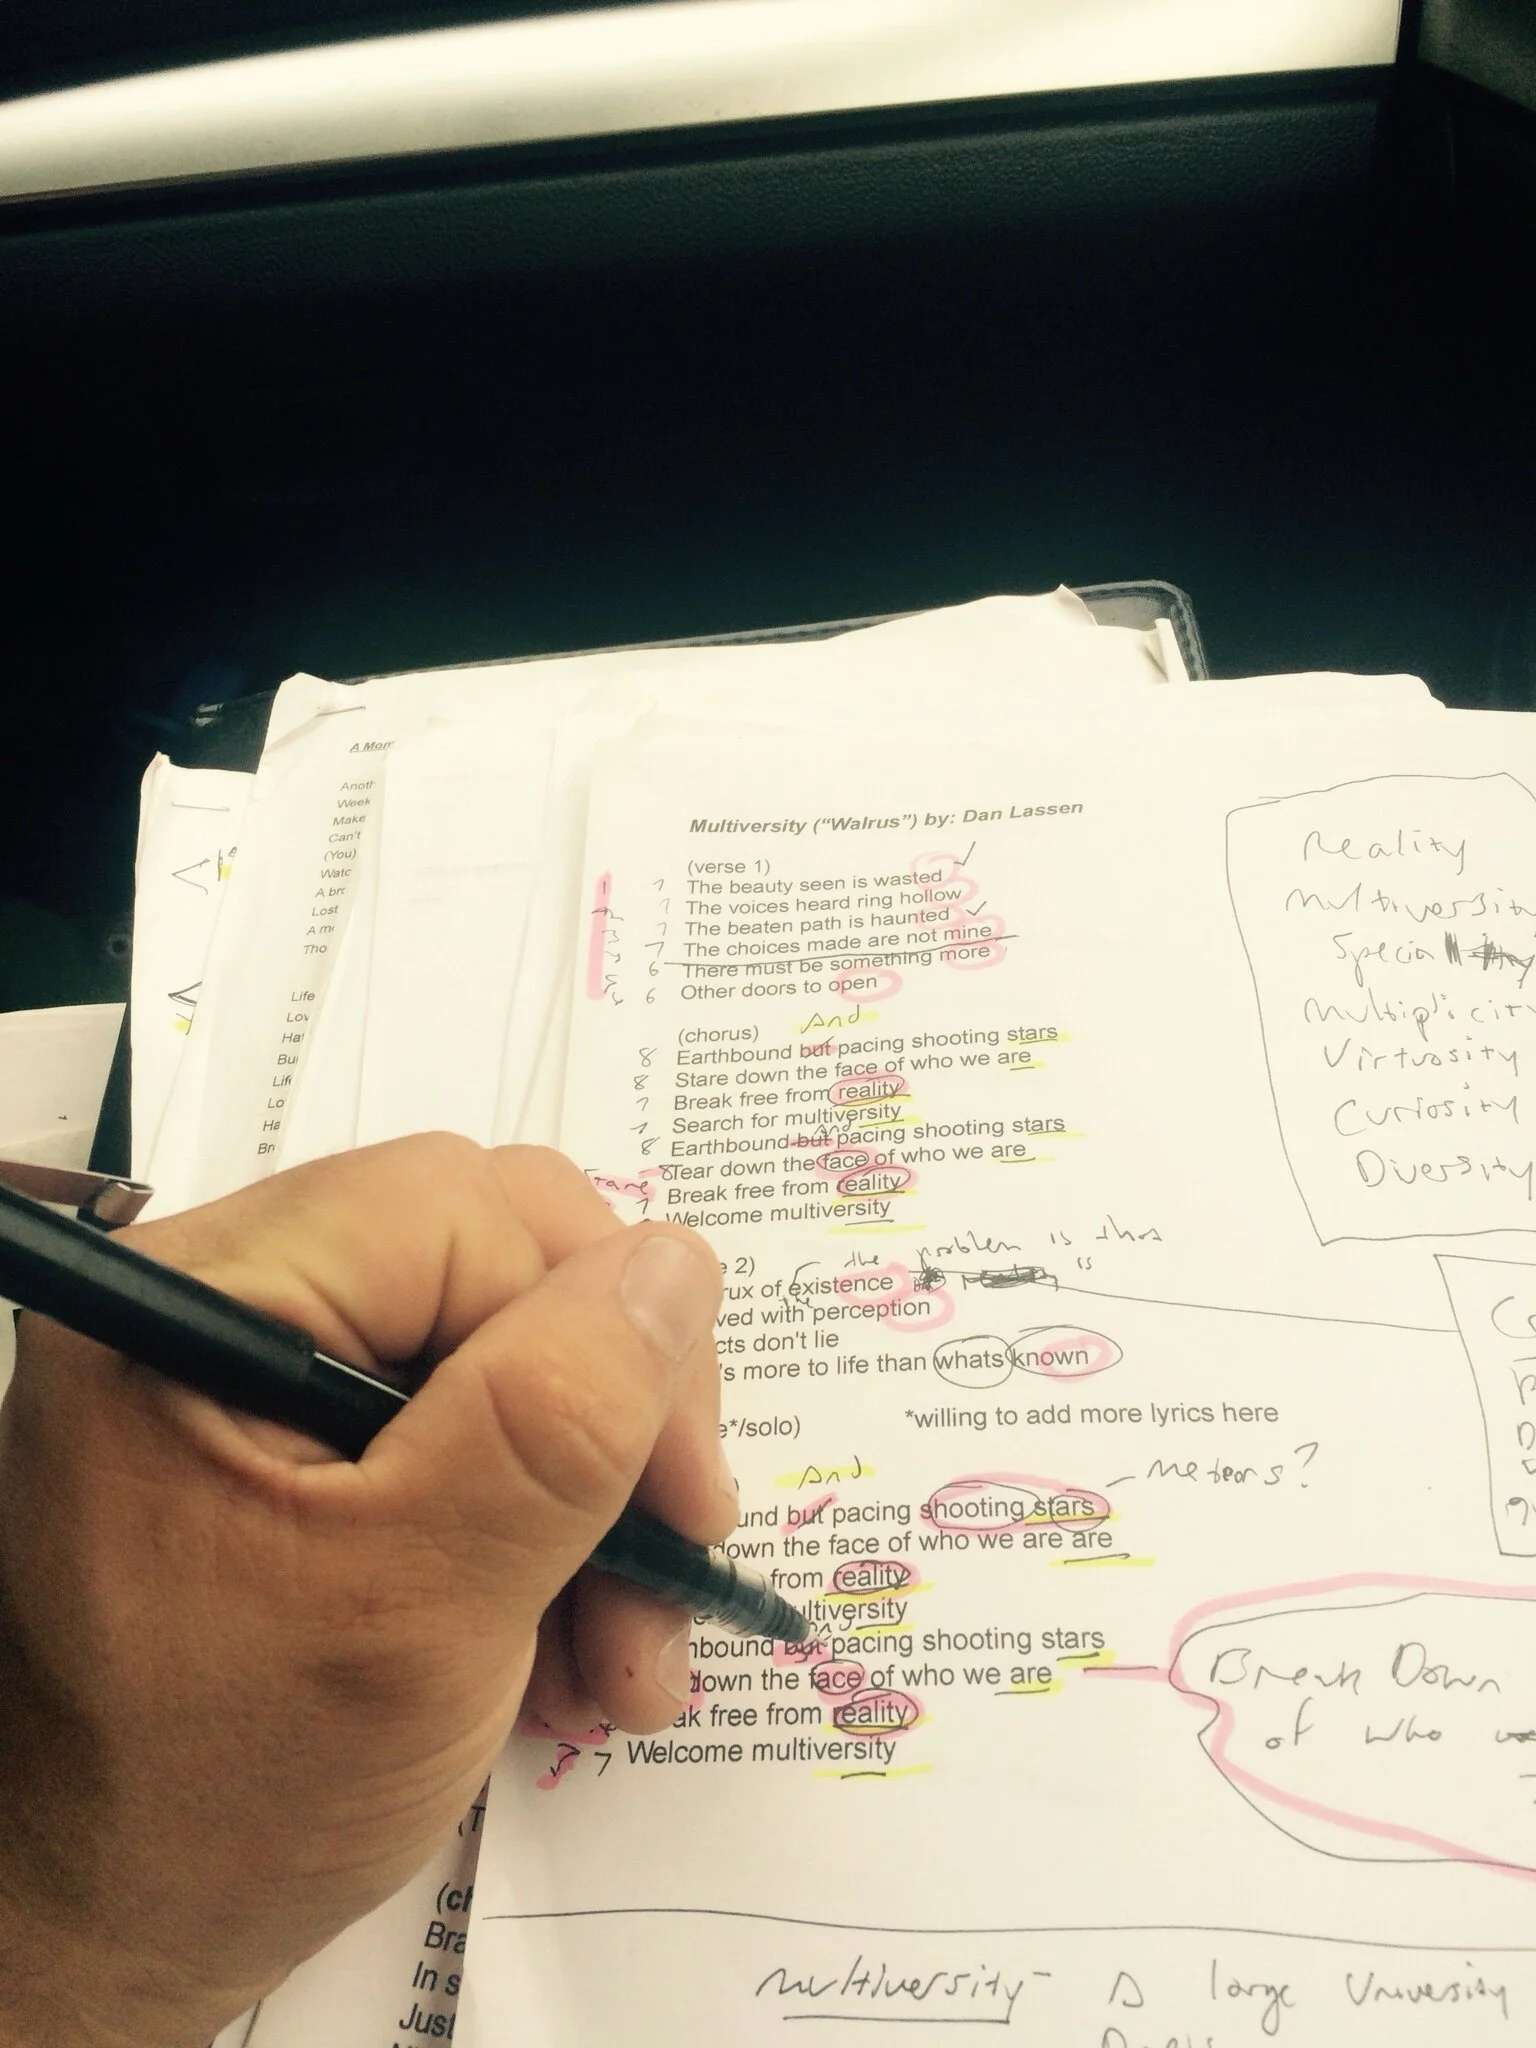 A Mom
Anoth
Week
Make
Can't
(You)
Watc
A bro
Lost
A mi
Tho
Life
Lov
Ha
Bu
Life
Lo
Ha
Br
Multiversity ("Walrus") by: Dan Lassen
(verse 1)
7 The beauty seen is wasted
7 The voices heard ring hollow
7 The beaten path is haunted
7 The choices made are not mine
6 There must be something more
6 Other doors to open
And
(chorus)
8 Earthbound but pacing shooting stars
8 Stare down the face of who we are
7 Break free from reality
7 Search for multiversity
And
8 Earthbound but pacing shooting stars
8 Tear down the face of who we are
7 Break free from reality
Welcome multiversity
the problem is that
e 2)
is
rux of existence
the
ved with perception
cts don't lie
's more to life than whats known
e*/solo) *willing to add more lyrics here
And
Meteors?
)
und but pacing shooting stars
down the face of who we are are
from reality
ultiversity
and
hbound but pacing shooting stars
down the face of who we are
ak free from reality
7 Welcome multiversity
Reality
Multiversity
Special
Multiplicity
Virtuosity
Curiosity
Diversity
Break Down
of who
Multiversity - A large University
(ch
Bra
In s
Just